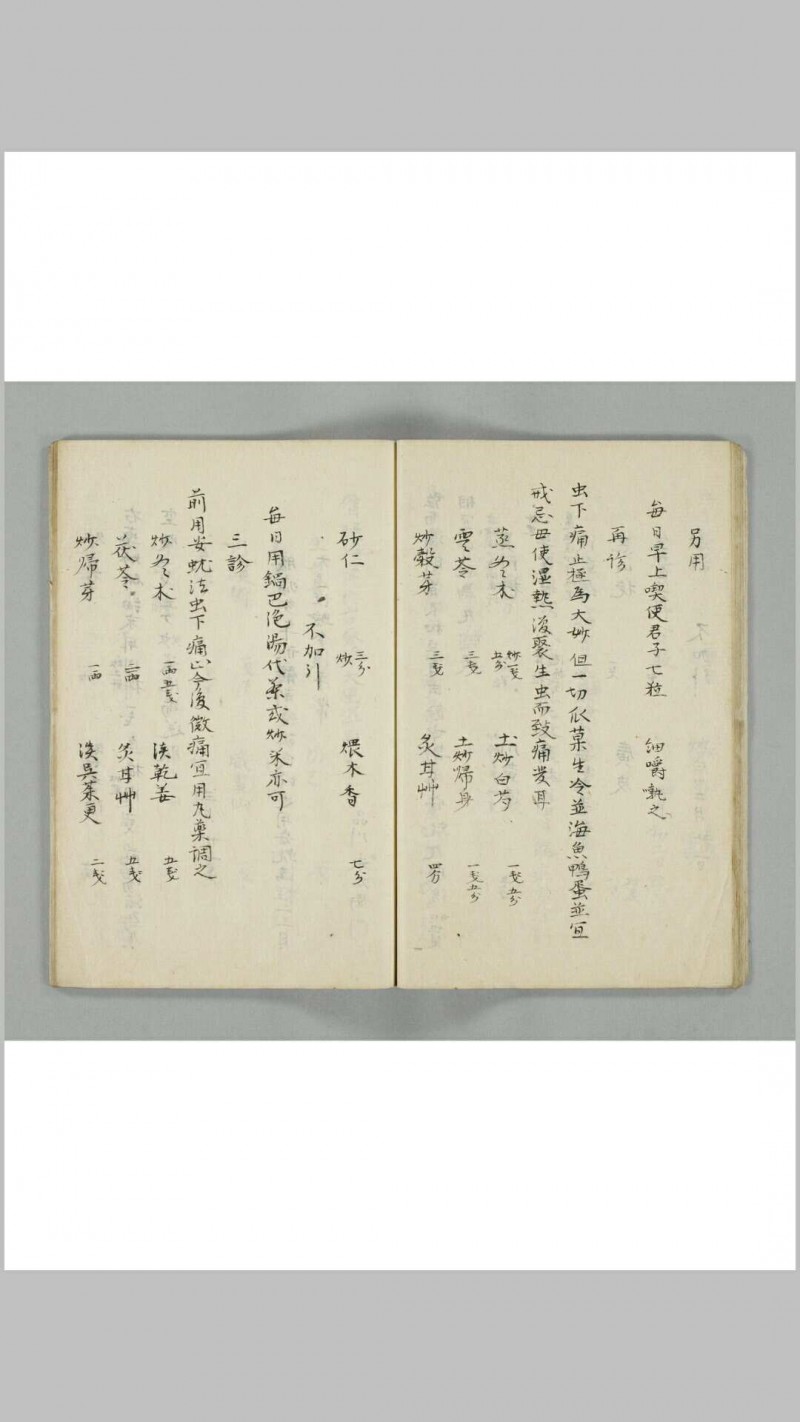 另用
每日早上喫使君子七粒 細嚼嚥之
再诊
虫下痛止極為大妙但一切瓜菓生冷並海魚鴨蛋並宜
戒忌毋使湿热復聚生虫而致痛发耳
蒸冬术 炒一戔五分 土炒白芍 一戔五分
雲苓 三戔 土炒歸身 一戔五分
炒穀芽 三戔 炙甘艸 四分
砂仁 炒三分 煨木香 七分
不加引
每日用鍋巴泡湯代藥或炒米亦可
三診
前用安蚘法虫下痛止今後微痛宜用丸藥調之
炒冬术 一両五戔 淡乾姜 五戔
茯苓 二両 炙甘艸 五戔
炒歸芽 一両 淡吴茱萸 二戔